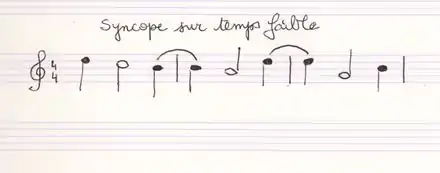 Syncope sur temps faible
4
4